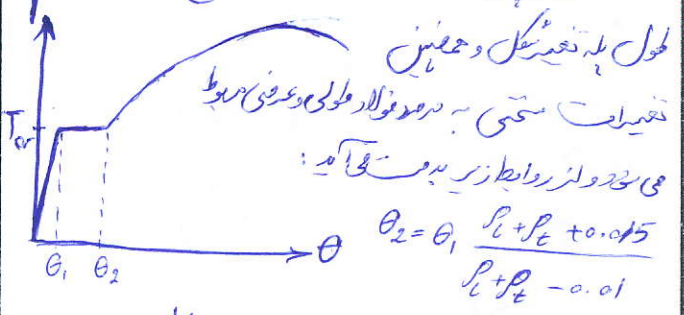 طول پله تغییر شکل و همچنین
تغییرات سختی به درصد فولاد طولی و عرضی مربوط
می شود و از روابط زیر بدست می آید :
θ₂ = θ₁ (ρ_l + ρ_t + 0.015) / (ρ_l + ρ_t - 0.01)
T_cr
θ
θ₁ θ₂